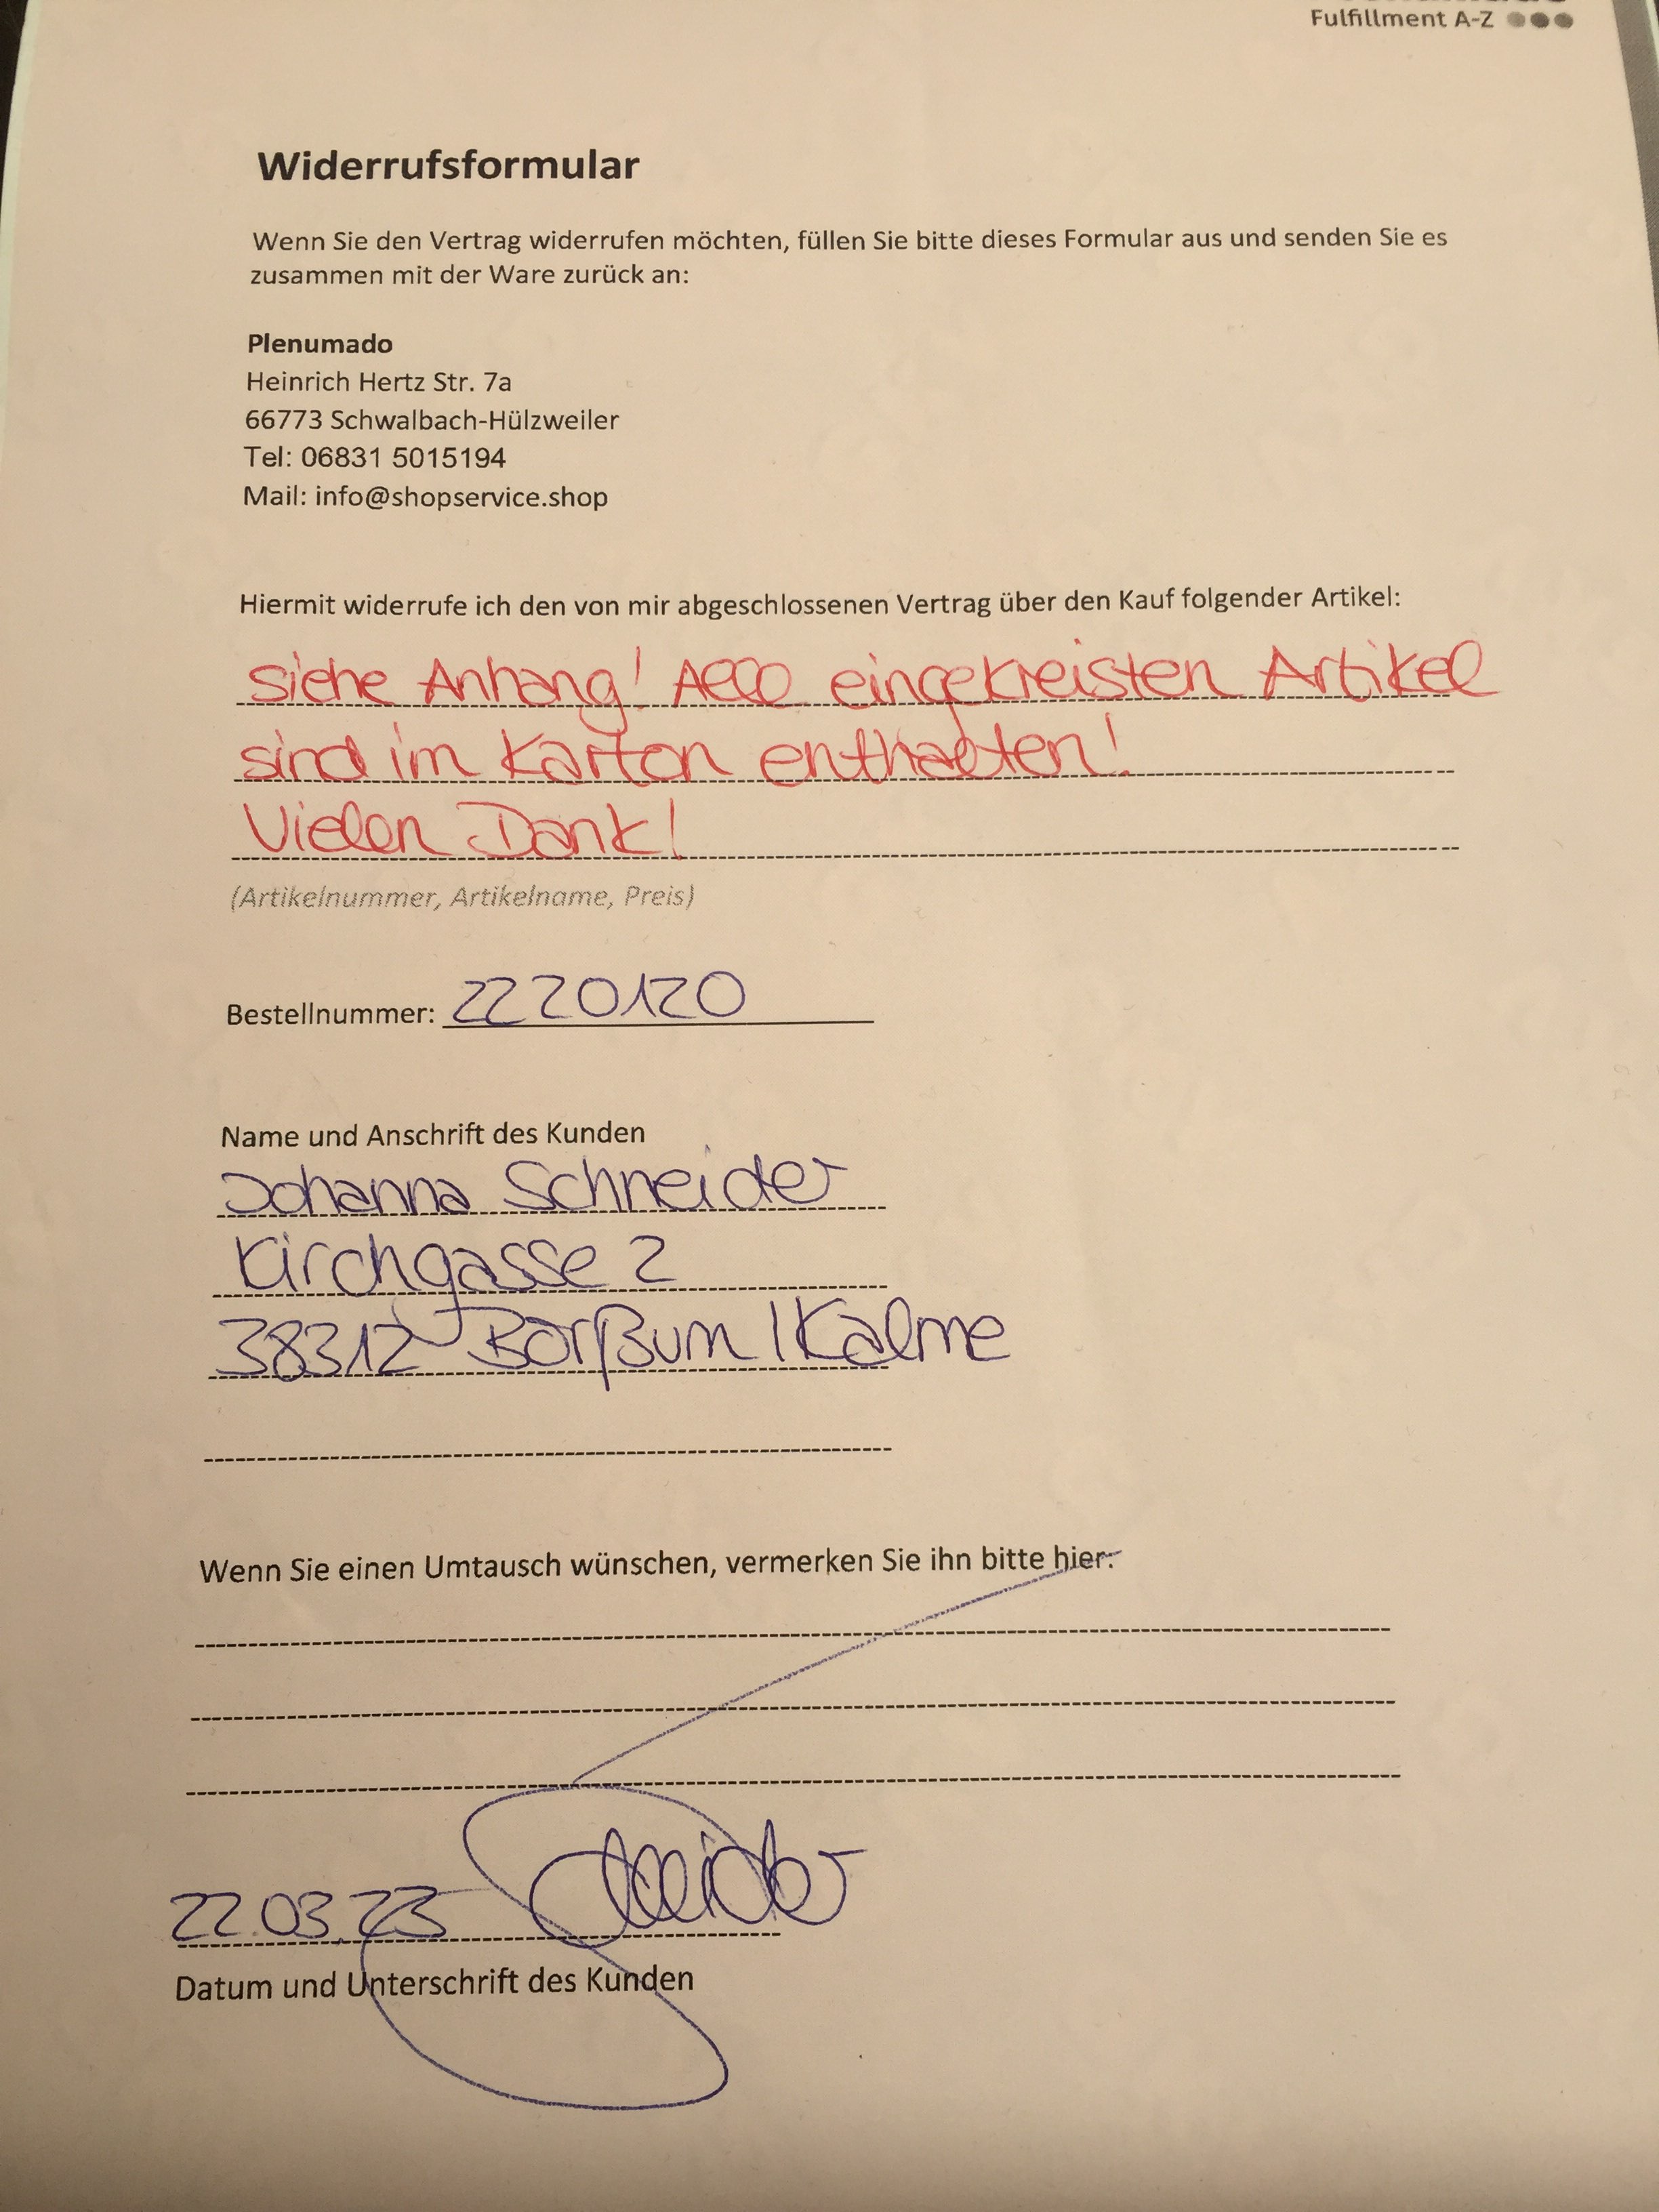 Fulfillment A-Z
Widerrufsformular
Wenn Sie den Vertrag widerrufen möchten, füllen Sie bitte dieses Formular aus und senden Sie es
zusammen mit der Ware zurück an:
Plenumado
Heinrich Hertz Str. 7a
66773 Schwalbach-Hülzweiler
Tel: 06831 5015194
Mail: info@shopservice.shop
Hiermit widerrufe ich den von mir abgeschlossenen Vertrag über den Kauf folgender Artikel:
Siehe Anhang! Alle eingekreisten Artikel
sind im Karton enthalten!
Vielen Dank!
(Artikelnummer, Artikelname, Preis)
Bestellnummer: 2220120
Name und Anschrift des Kunden
Johanna Schneider
Kirchgasse 2
38312 Börßum / Kalme
Wenn Sie einen Umtausch wünschen, vermerken Sie ihn bitte hier:
22.03.23
Datum und Unterschrift des Kunden